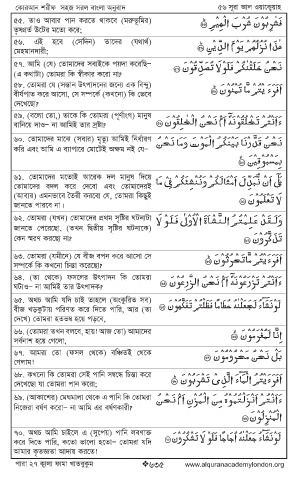 কোরআন শরীফ সহজ সরল বাংলা অনুবাদ
৫৬ সূরা আল ওয়াক্বেয়াহ
৫৫. তাও আবার পান করতে থাকবে (মরুভূমির)
তৃষ্ণার্ত উটের মতো করে;
فَشٰرِبُوْنَ شُرْبَ الْهِيْمِ
৫৬. এই হবে (সেদিন) তাদের (যথার্থ)
মেহমানদারী;
هٰذَا نُزُلُهُمْ يَوْمَ الدِّيْنِ
৫৭. আমি (যে) তোমাদের সবাইকে পয়দা করেছি-
(এ কথাটা) তোমরা কি স্বীকার করো না?
نَحْنُ خَلَقْنٰكُمْ فَلَوْلَا تُصَدِّقُوْنَ
৫৮. তোমরা যে (সন্তান উৎপাদনের জন্যে এক বিন্দু)
বীর্যপাত করে আসো, সে সম্পর্কে (কখনো) কি ভেবে
দেখেছো?
اَفَرَءَيْتُمْ مَّا تُمْنُوْنَ
৫৯. (বলো তো,) তাকে কি তোমরা (পূর্ণাংগ) মানুষ
বানিয়ে দাও– না আমিই তার স্রষ্টা?
ءَاَنْتُمْ تَخْلُقُوْنَهٗٓ اَمْ نَحْنُ الْخٰلِقُوْنَ
৬০. তোমাদের মাঝে (সবার) মৃত্যু আমিই নির্ধারণ
করি এবং আমি এ ব্যাপারে মোটেই অক্ষম নই যে–
نَحْنُ قَدَّرْنَا بَيْنَكُمُ الْمَوْتَ وَمَا نَحْنُ
بِمَسْبُوْقِيْنَ
৬১. তোমাদের মতোই আরেক দল মানুষ দিয়ে
তোমাদের বদল করে দেবো এবং তোমাদেরই
(আবার) এমনভাবে তৈরী করবো যে, তোমরা কিছুই
জানতে পারবে না।
عَلٰٓى اَنْ نُّبَدِّلَ اَمْثَالَكُمْ وَنُنْشِئَكُمْ فِيْ مَا
لَا تَعْلَمُوْنَ
৬২. তোমরা (যখন) তোমাদের প্রথম সৃষ্টির ঘটনাটা
জানতে পেরেছো, (তখন দ্বিতীয় সৃষ্টির ঘটনাকে)
কেন স্মরণ করছো না?
وَلَقَدْ عَلِمْتُمُ النَّشْاَةَ الْاُوْلٰى فَلَوْلَا
تَذَكَّرُوْنَ
৬৩. তোমরা (যমীনে) যে বীজ বপন করে আসো সে
সম্পর্কে কি কখনো চিন্তা করেছো?
اَفَرَءَيْتُمْ مَّا تَحْرُثُوْنَ
৬৪. (তা থেকে) ফসলের উৎপাদন কি তোমরা
ঘটাও– না আমিই তার উৎপাদক?
ءَاَنْتُمْ تَزْرَعُوْنَهٗٓ اَمْ نَحْنُ الزّٰرِعُوْنَ
৬৫. অথচ আমি যদি চাই তাহলে (অংকুরিত সব)
বীজ খড়কুটায় পরিণত করে দিতে পারি, আর (তা
দেখে) তোমরা হতভম্ব হয়ে পড়বে,
لَوْ نَشَآءُ لَجَعَلْنٰهُ حُطَامًا فَظَلْتُمْ تَفَكَّهُوْنَ
৬৬. (তোমরা তখন বলবে, হায়! আজ তো) আমাদের
সর্বনাশ হয়ে গেলো,
اِنَّا لَمُغْرَمُوْنَ
৬৭. আমরা তো (ফসল থেকে) বঞ্চিতই থেকে
গেলাম!
بَلْ نَحْنُ مَحْرُوْمُوْنَ
৬৮. কখনো কি তোমরা সেই পানি সম্বন্ধে চিন্তা করে
দেখেছো যা তোমরা পান করো;
اَفَرَءَيْتُمُ الْمَآءَ الَّذِيْ تَشْرَبُوْنَ
৬৯. (আকাশের) মেঘমালা থেকে এ পানি কি তোমরা
নিজেরা বর্ষণ করো– না আমি এর বর্ষণকারী?
ءَاَنْتُمْ اَنْزَلْتُمُوْهُ مِنَ الْمُزْنِ اَمْ نَحْنُ
الْمُنْزِلُوْنَ
৭০. অথচ আমি চাইলে এ (সুপেয়) পানি লবণাক্ত
করে দিতে পারি, কতো ভালো হতো– তোমরা যদি
আমার কৃতজ্ঞতা আদায় করতে!
لَوْ نَشَآءُ جَعَلْنٰهُ اُجَاجًا فَلَوْلَا تَشْكُرُوْنَ
পারা ২৭ ক্বালা ফামা খাতবুকুম
৬৩৫
www.alquranacademylondon.org